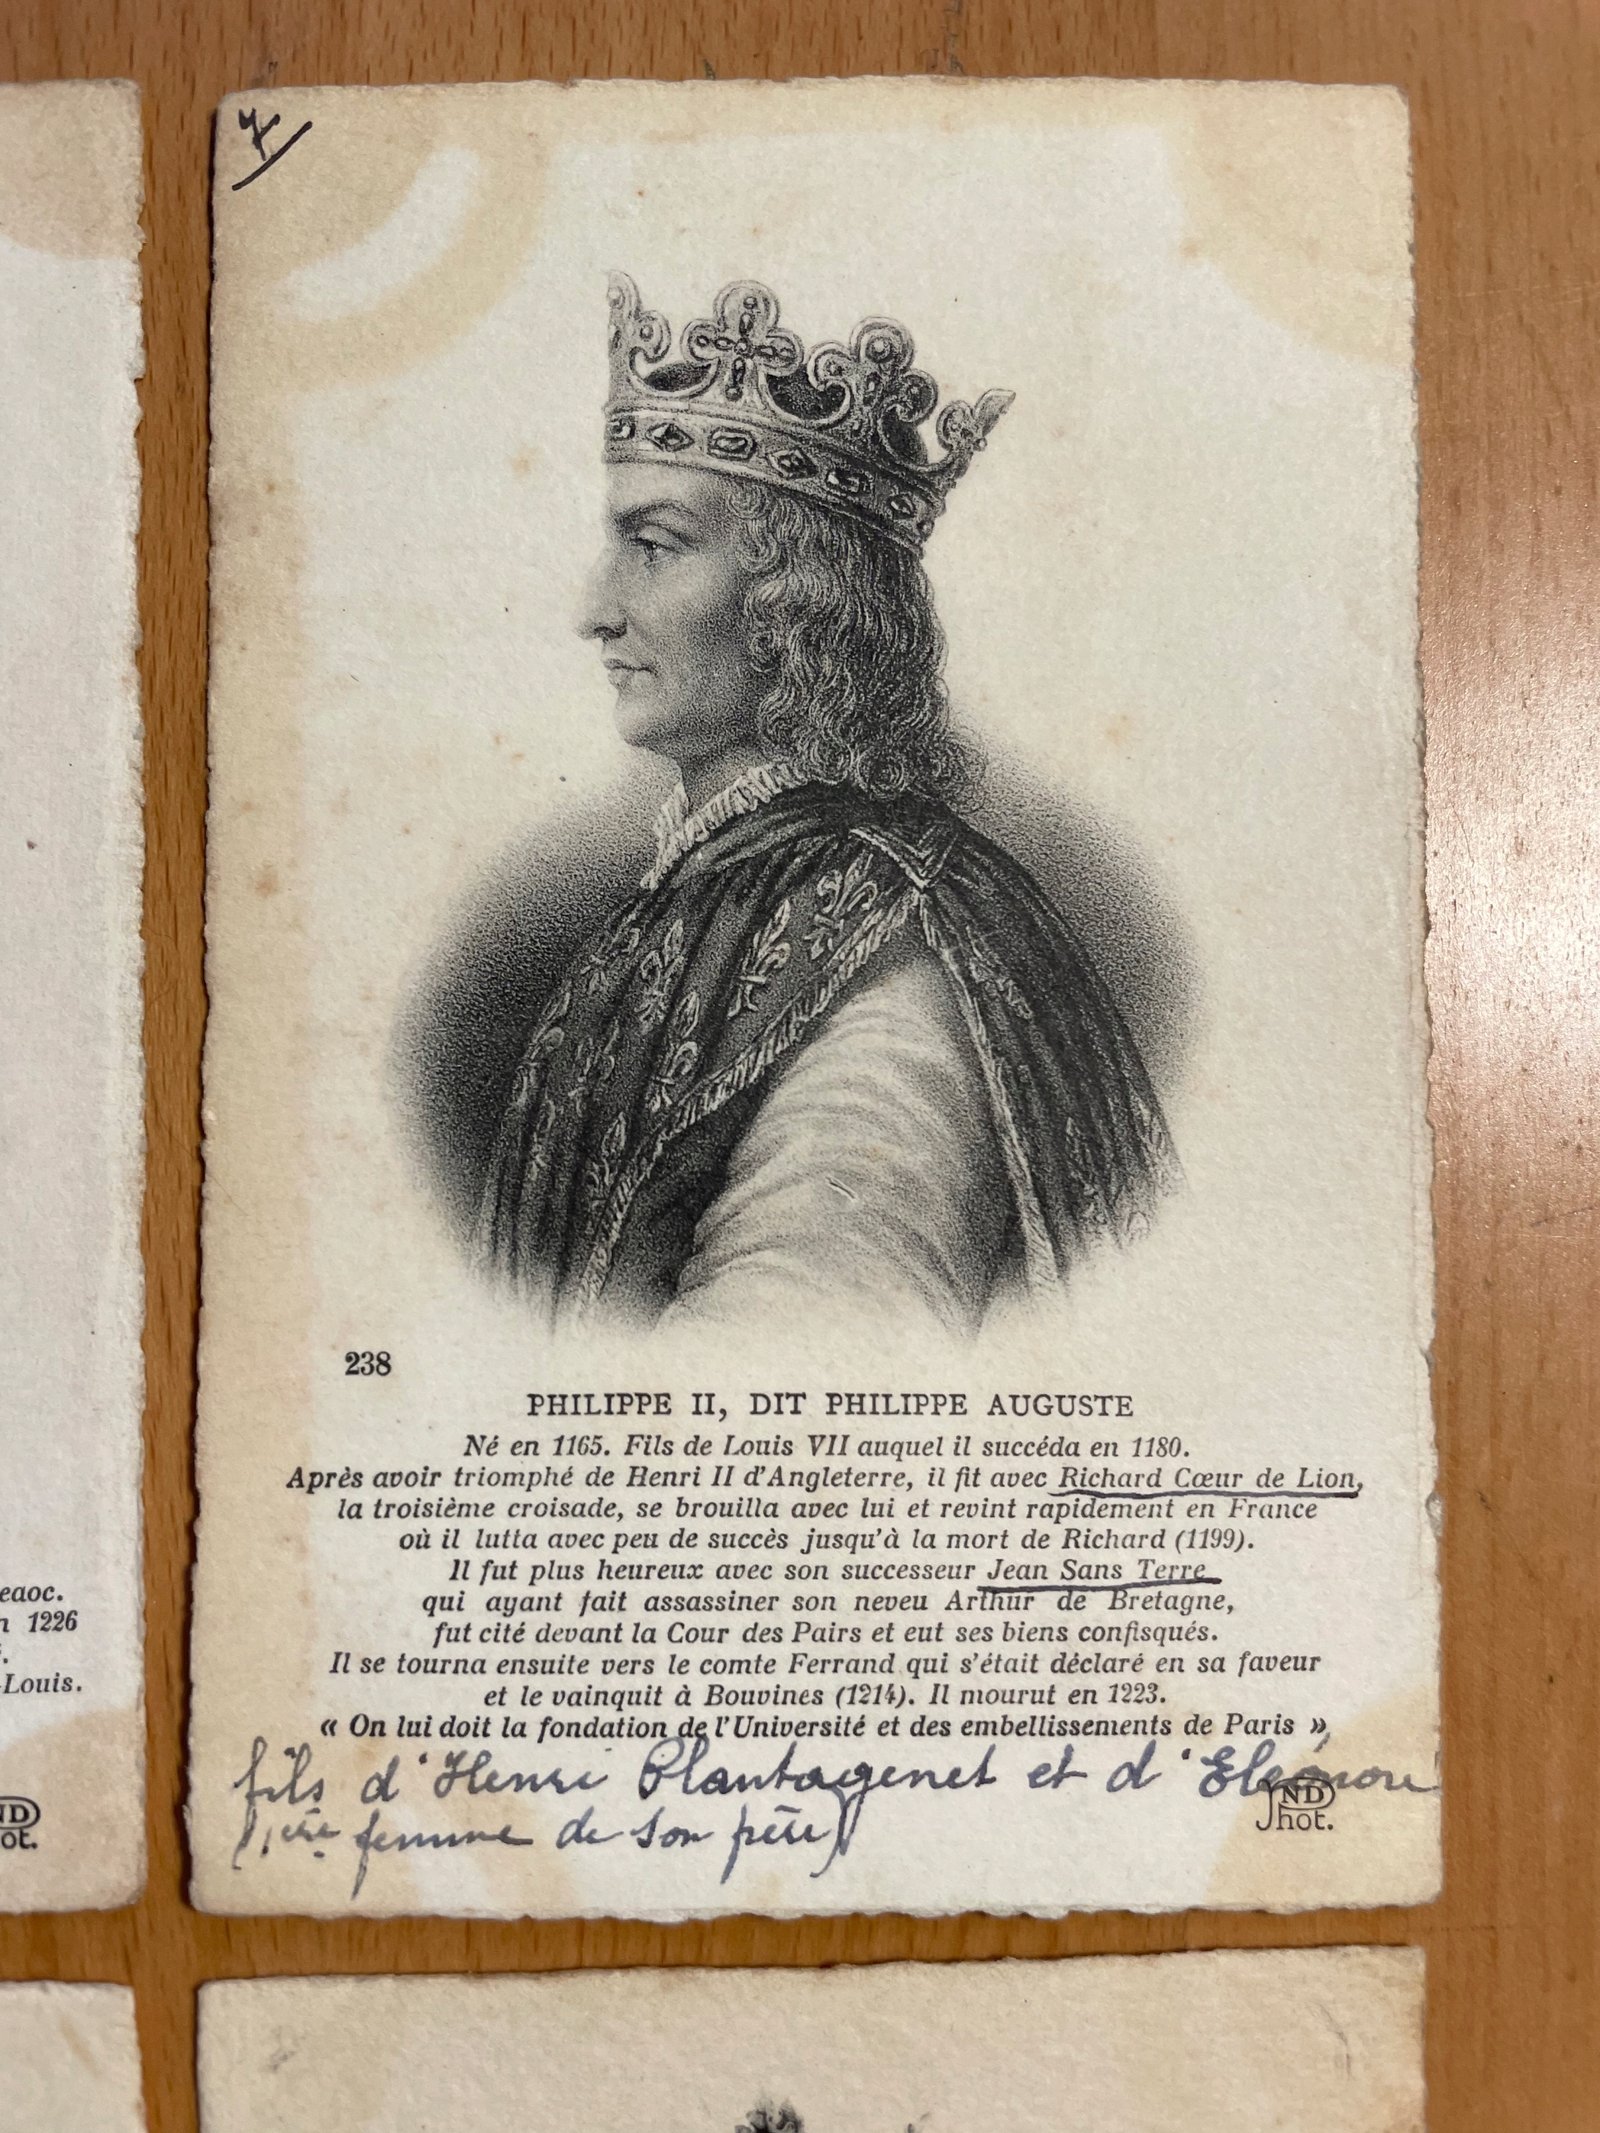 7
238
PHILIPPE II, DIT PHILIPPE AUGUSTE
Né en 1165. Fils de Louis VII auquel il succéda en 1180.
Après avoir triomphé de Henri II d'Angleterre, il fit avec Richard Cœur de Lion,
la troisième croisade, se brouilla avec lui et revint rapidement en France
où il lutta avec peu de succès jusqu'à la mort de Richard (1199).
Il fut plus heureux avec son successeur Jean Sans Terre
qui ayant fait assassiner son neveu Arthur de Bretagne,
fut cité devant la Cour des Pairs et eut ses biens confisqués.
Il se tourna ensuite vers le comte Ferrand qui s'était déclaré en sa faveur
et le vainquit à Bouvines (1214). Il mourut en 1223.
« On lui doit la fondation de l'Université et des embellissements de Paris »,
fils d'Henri Plantagenet et d'Eléonore
(1ère femme de son père)
ND
Phot.
eaoc.
n 1226
-Louis.
ND
ot.